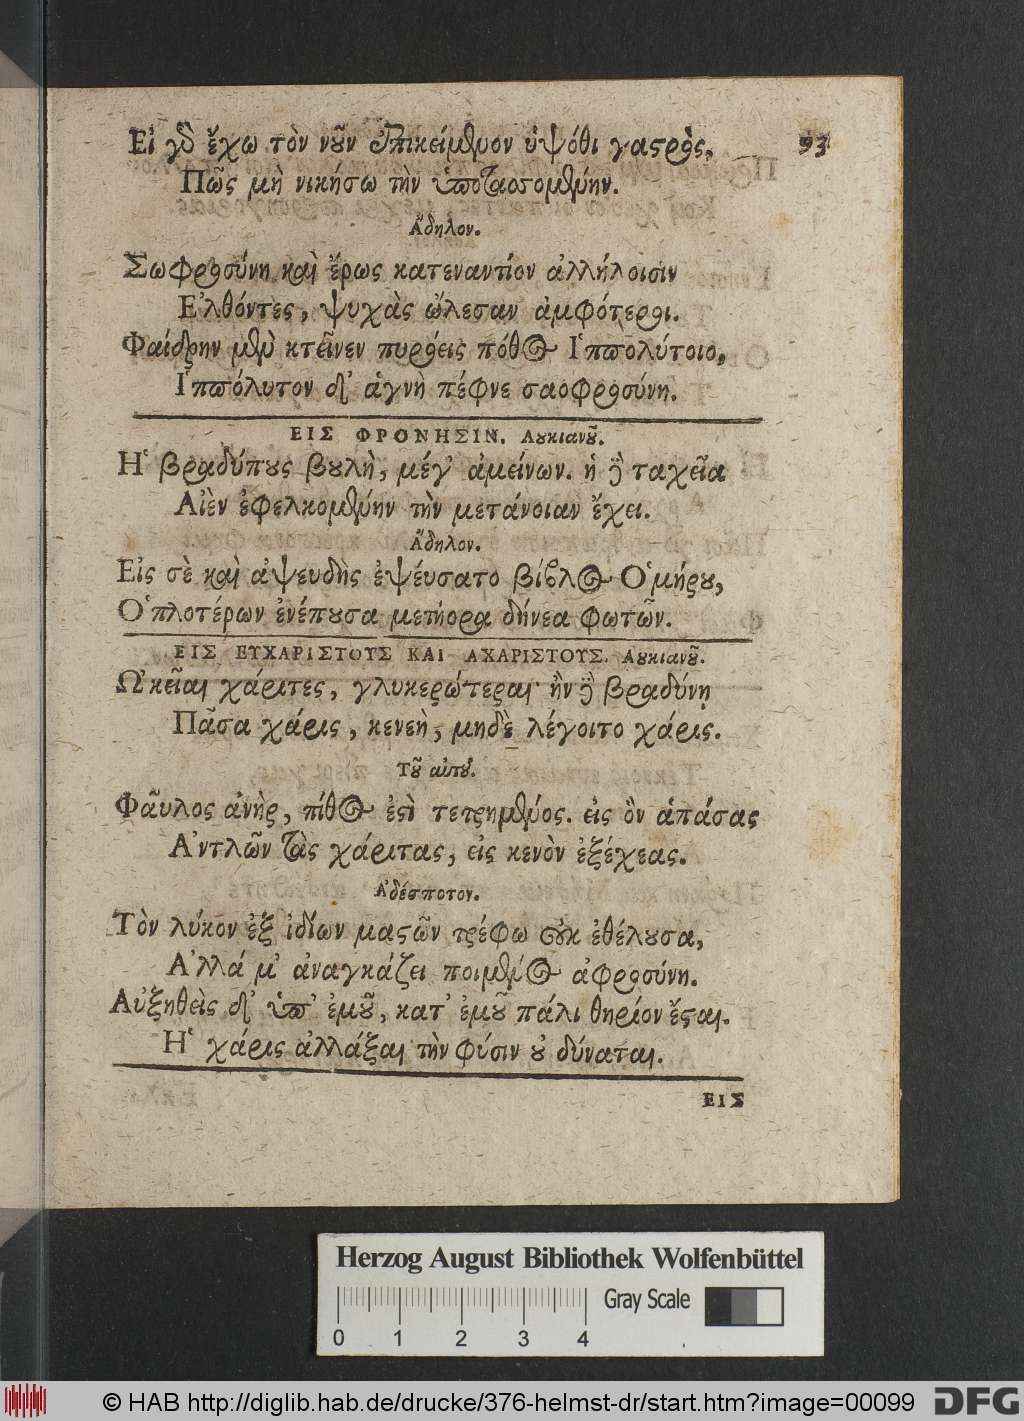 Εἰ γὸ ἔχω τὸν νῦν ἐπικείμενον ὑψόθι γαστρὸς, 93
Πῶς μὴ νικήσω τὴν ὑποτασσομένην.
Ἄδηλον.
Σωφροσύνη καὶ ἔρως κατεναντίον ἀλλήλοισιν
Ἐλθόντες, ψυχὰς ὤλεσαν ἀμφότεροι.
Φαίδρην μὲν κτεῖνεν πυρόεις πόθος Ἱππολύτοιο,
Ἱππόλυτον δ' ἁγνὴ πέφνε σαοφροσύνη.
ΕΙΣ ΦΡΟΝΗΣΙΝ. Λουκιανοῦ.
Ἡ βραδύπους βουλὴ, μέγ' ἀμείνων. ἡ δὲ ταχεῖα
Αἰὲν ἐφελκομένην τὴν μετάνοιαν ἔχει.
Ἄδηλον.
Εἰς σὲ καὶ ἀψευδὴς ἐψέυσατο βίβλος Ὁμήρου,
Ὁπλοτέρων ἐνέπουσα μετήορα δήνεα φωτῶν.
ΕΙΣ ΕΥΧΑΡΙΣΤΟΥΣ ΚΑΙ ΑΧΑΡΙΣΤΟΥΣ. Λουκιανοῦ.
Ὠκεῖαι χάριτες, γλυκερώτεραι· ἢν δὲ βραδύνῃ
Πᾶσα χάρις, κενεὴ, μηδὲ λέγοιτο χάρις.
Τοῦ αὐτοῦ.
Φαῦλος ἀνὴρ, πίθος ἐστὶ τετρημένος. εἰς ὃν ἁπάσας
Ἀντλῶν τὰς χάριτας, εἰς κενὸν ἐξέχεας.
Ἀδέσποτον.
Τὸν λύκον ἐξ ἰδίων μαστῶν τρέφω οὐκ ἐθέλουσα,
Ἀλλά μ' ἀναγκάζει ποιμένος ἀφροσύνη.
Αὐξηθεὶς δ' ὑπ' ἐμοῦ, κατ' ἐμοῦ πάλι θηρίον ἔσται.
Ἡ χάρις ἀλλάξαι τὴν φύσιν οὐ δύναται.
ΕΙΣ
Herzog August Bibliothek Wolfenbüttel
Gray Scale
0 1 2 3 4
© HAB http://diglib.hab.de/drucke/376-helmst-dr/start.htm?image=00099 DFG